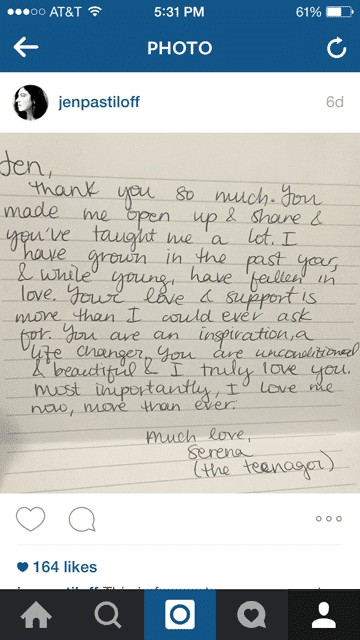 AT&T 5:31 PM 61%
PHOTO
jenpastiloff 6d
Jen,
Thank you so much. You
made me open up & share &
you've taught me a lot. I
have grown in the past year,
& while young, have fallen in
love. Your love & support is
more than I could ever ask
for. You are an inspiration, a
life changer. You are unconditional
& beautiful & I truly love you.
Most importantly, I love me
now, more than ever.
Much love,
Serena
(the teenager)
164 likes